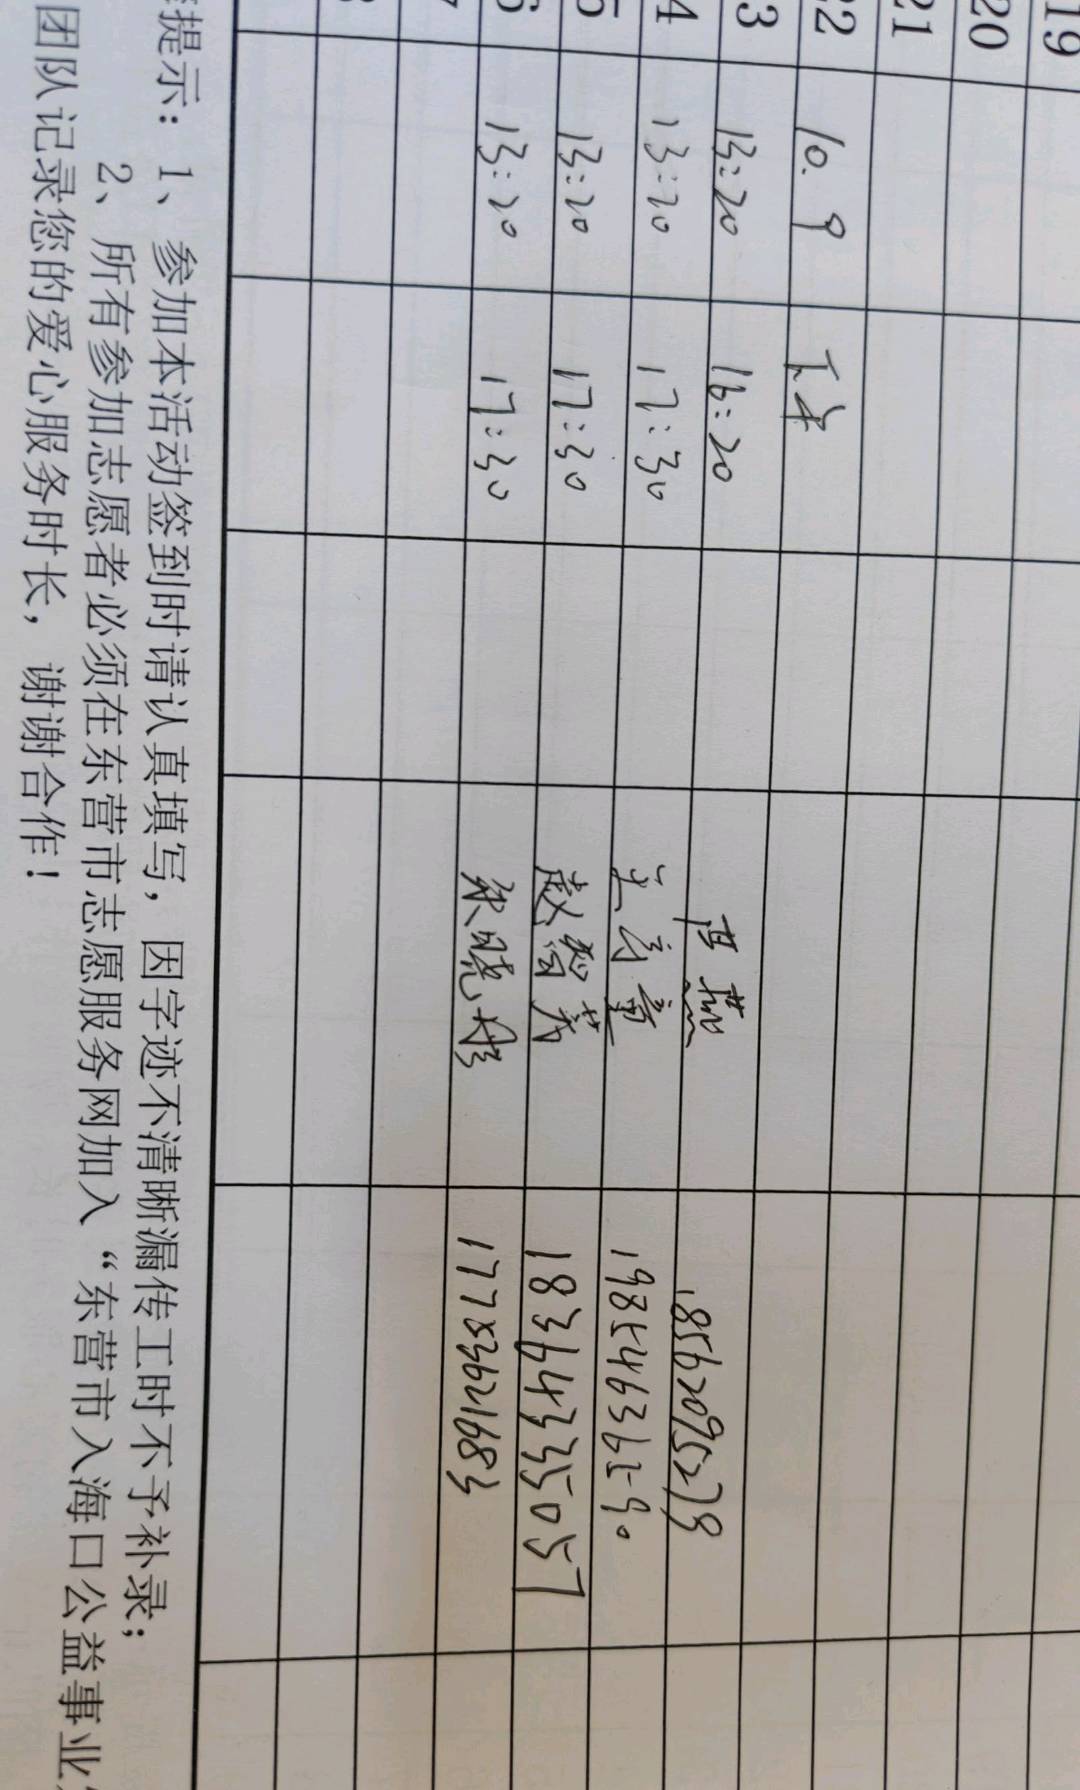 19
20
21
22 10.9 下午
3 13:20 16:20
4 13:20 17:30
5 13:20 17:30 18364335057
6 13:20 17:30 张晓彤 17753621683
7
提示：1、参加本活动签到时请认真填写，因字迹不清晰漏传工时不予补录；
2、所有参加志愿者必须在东营市志愿服务网加入“东营市入海口公益事业
团队记录您的爱心服务时长，谢谢合作！